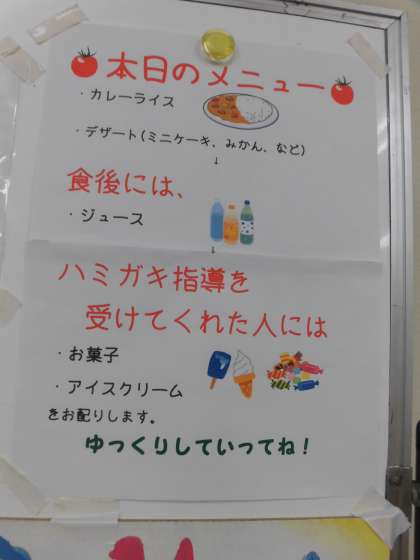 本日のメニュー
・カレーライス
・デザート(ミニケーキ、みかん、など)
↓
食後には、
・ジュース
↓
ハミガキ指導を
受けてくれた人には
・お菓子
・アイスクリーム
をお配りします。
ゆっくりしていってね!